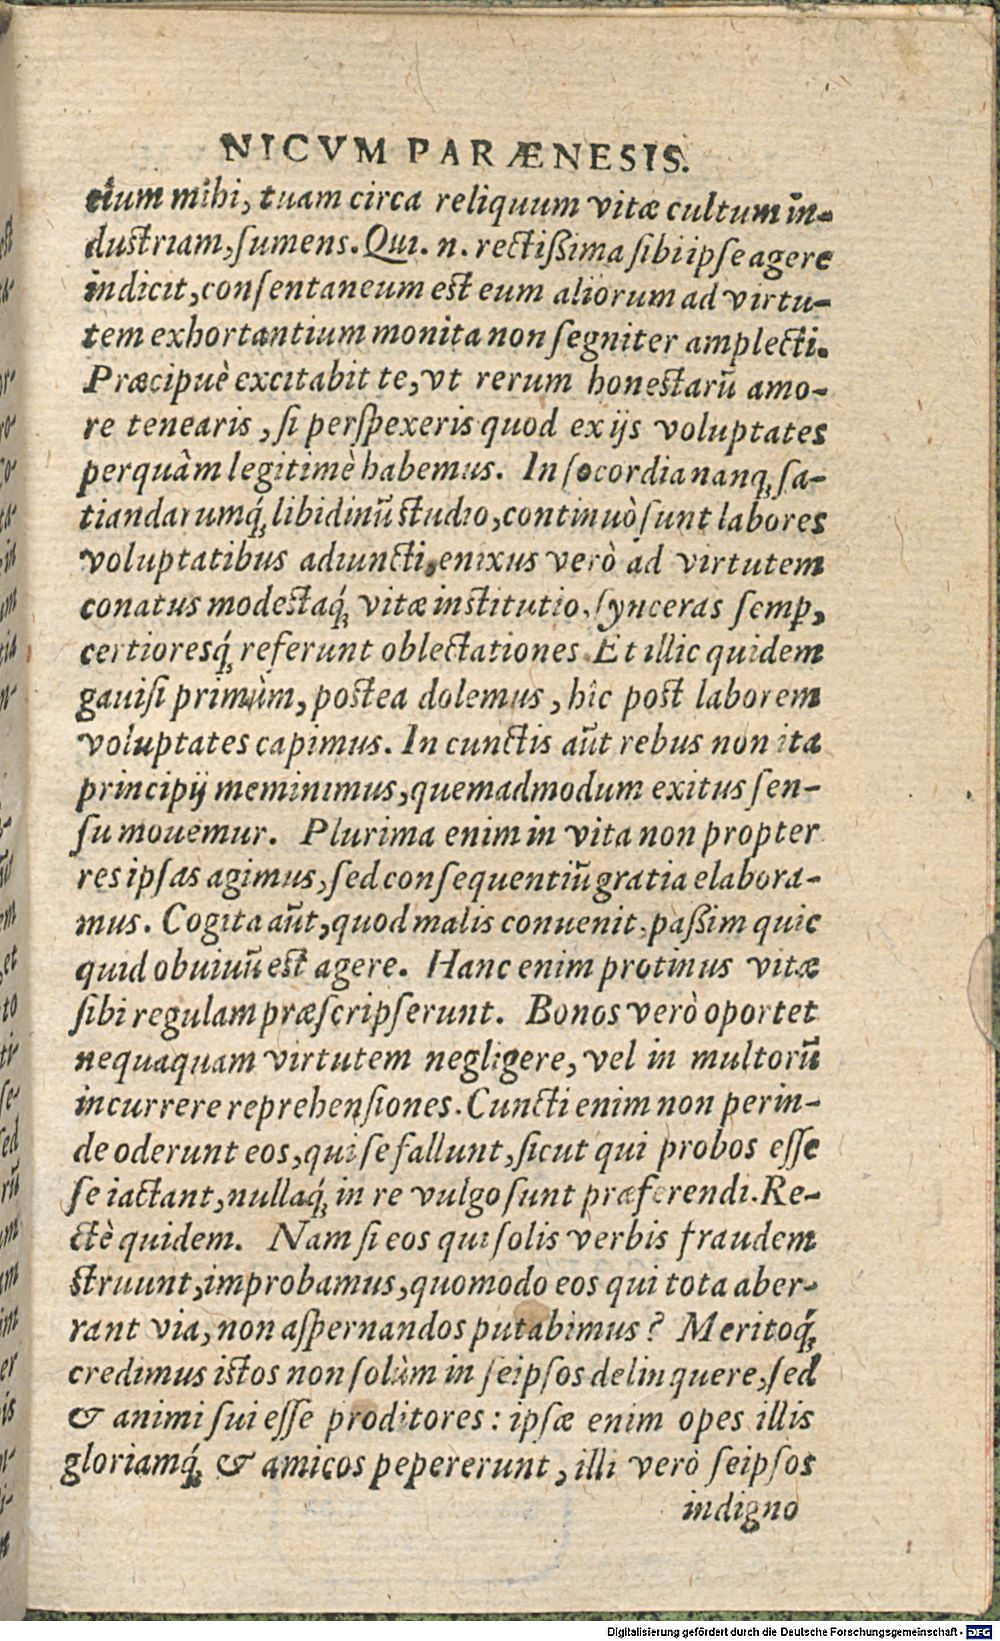 NICVM PARÆNESIS.
cium mihi, tuam circa reliquum vitæ cultum in-
dustriam, sumens. Qui. n. rectißima sibi ipse agere
indicit, consentaneum est eum aliorum ad virtu-
tem exhortantium monita non segniter amplecti.
Præcipuè excitabit te, vt rerum honestarũ amo-
re tenearis, si perspexeris quod ex ijs voluptates
perquàm legitimè habemus. In socordia nanq́; sa-
tiandarumq́; libidinũ studio, continuò sunt labores
voluptatibus adiuncti, enixus verò ad virtutem
conatus modestaq́; vitæ institutio, synceras semp,
certioresq́; referunt oblectationes. Et illic quidem
gauisi primùm, postea dolemus, hîc post laborem
voluptates capimus. In cunctis aũt rebus non ita
principij meminimus, quemadmodum exitus sen-
su mouemur. Plurima enim in vita non propter
res ipsas agimus, sed consequentiũ gratia elabora-
mus. Cogita aũt, quod malis conuenit, paßim quic
quid obuiuũ est agere. Hanc enim protinus vitæ
sibi regulam præscripserunt. Bonos verò oportet
nequaquam virtutem negligere, vel in multorũ
incurrere reprehensiones. Cuncti enim non perin-
de oderunt eos, qui se fallunt, sicut qui probos esse
se iactant, nullaq́; in re vulgo sunt præferendi. Re-
ctè quidem. Nam si eos qui solis verbis fraudem
struunt, improbamus, quomodo eos qui tota aber-
rant via, non aspernandos putabimus? Meritoq́;
credimus istos non solùm in seipsos delinquere, sed
& animi sui esse proditores: ipsæ enim opes illis
gloriamq́; & amicos pepererunt, illi verò seipsos
indigno
Digitalisierung gefördert durch die Deutsche Forschungsgemeinschaft - DFG